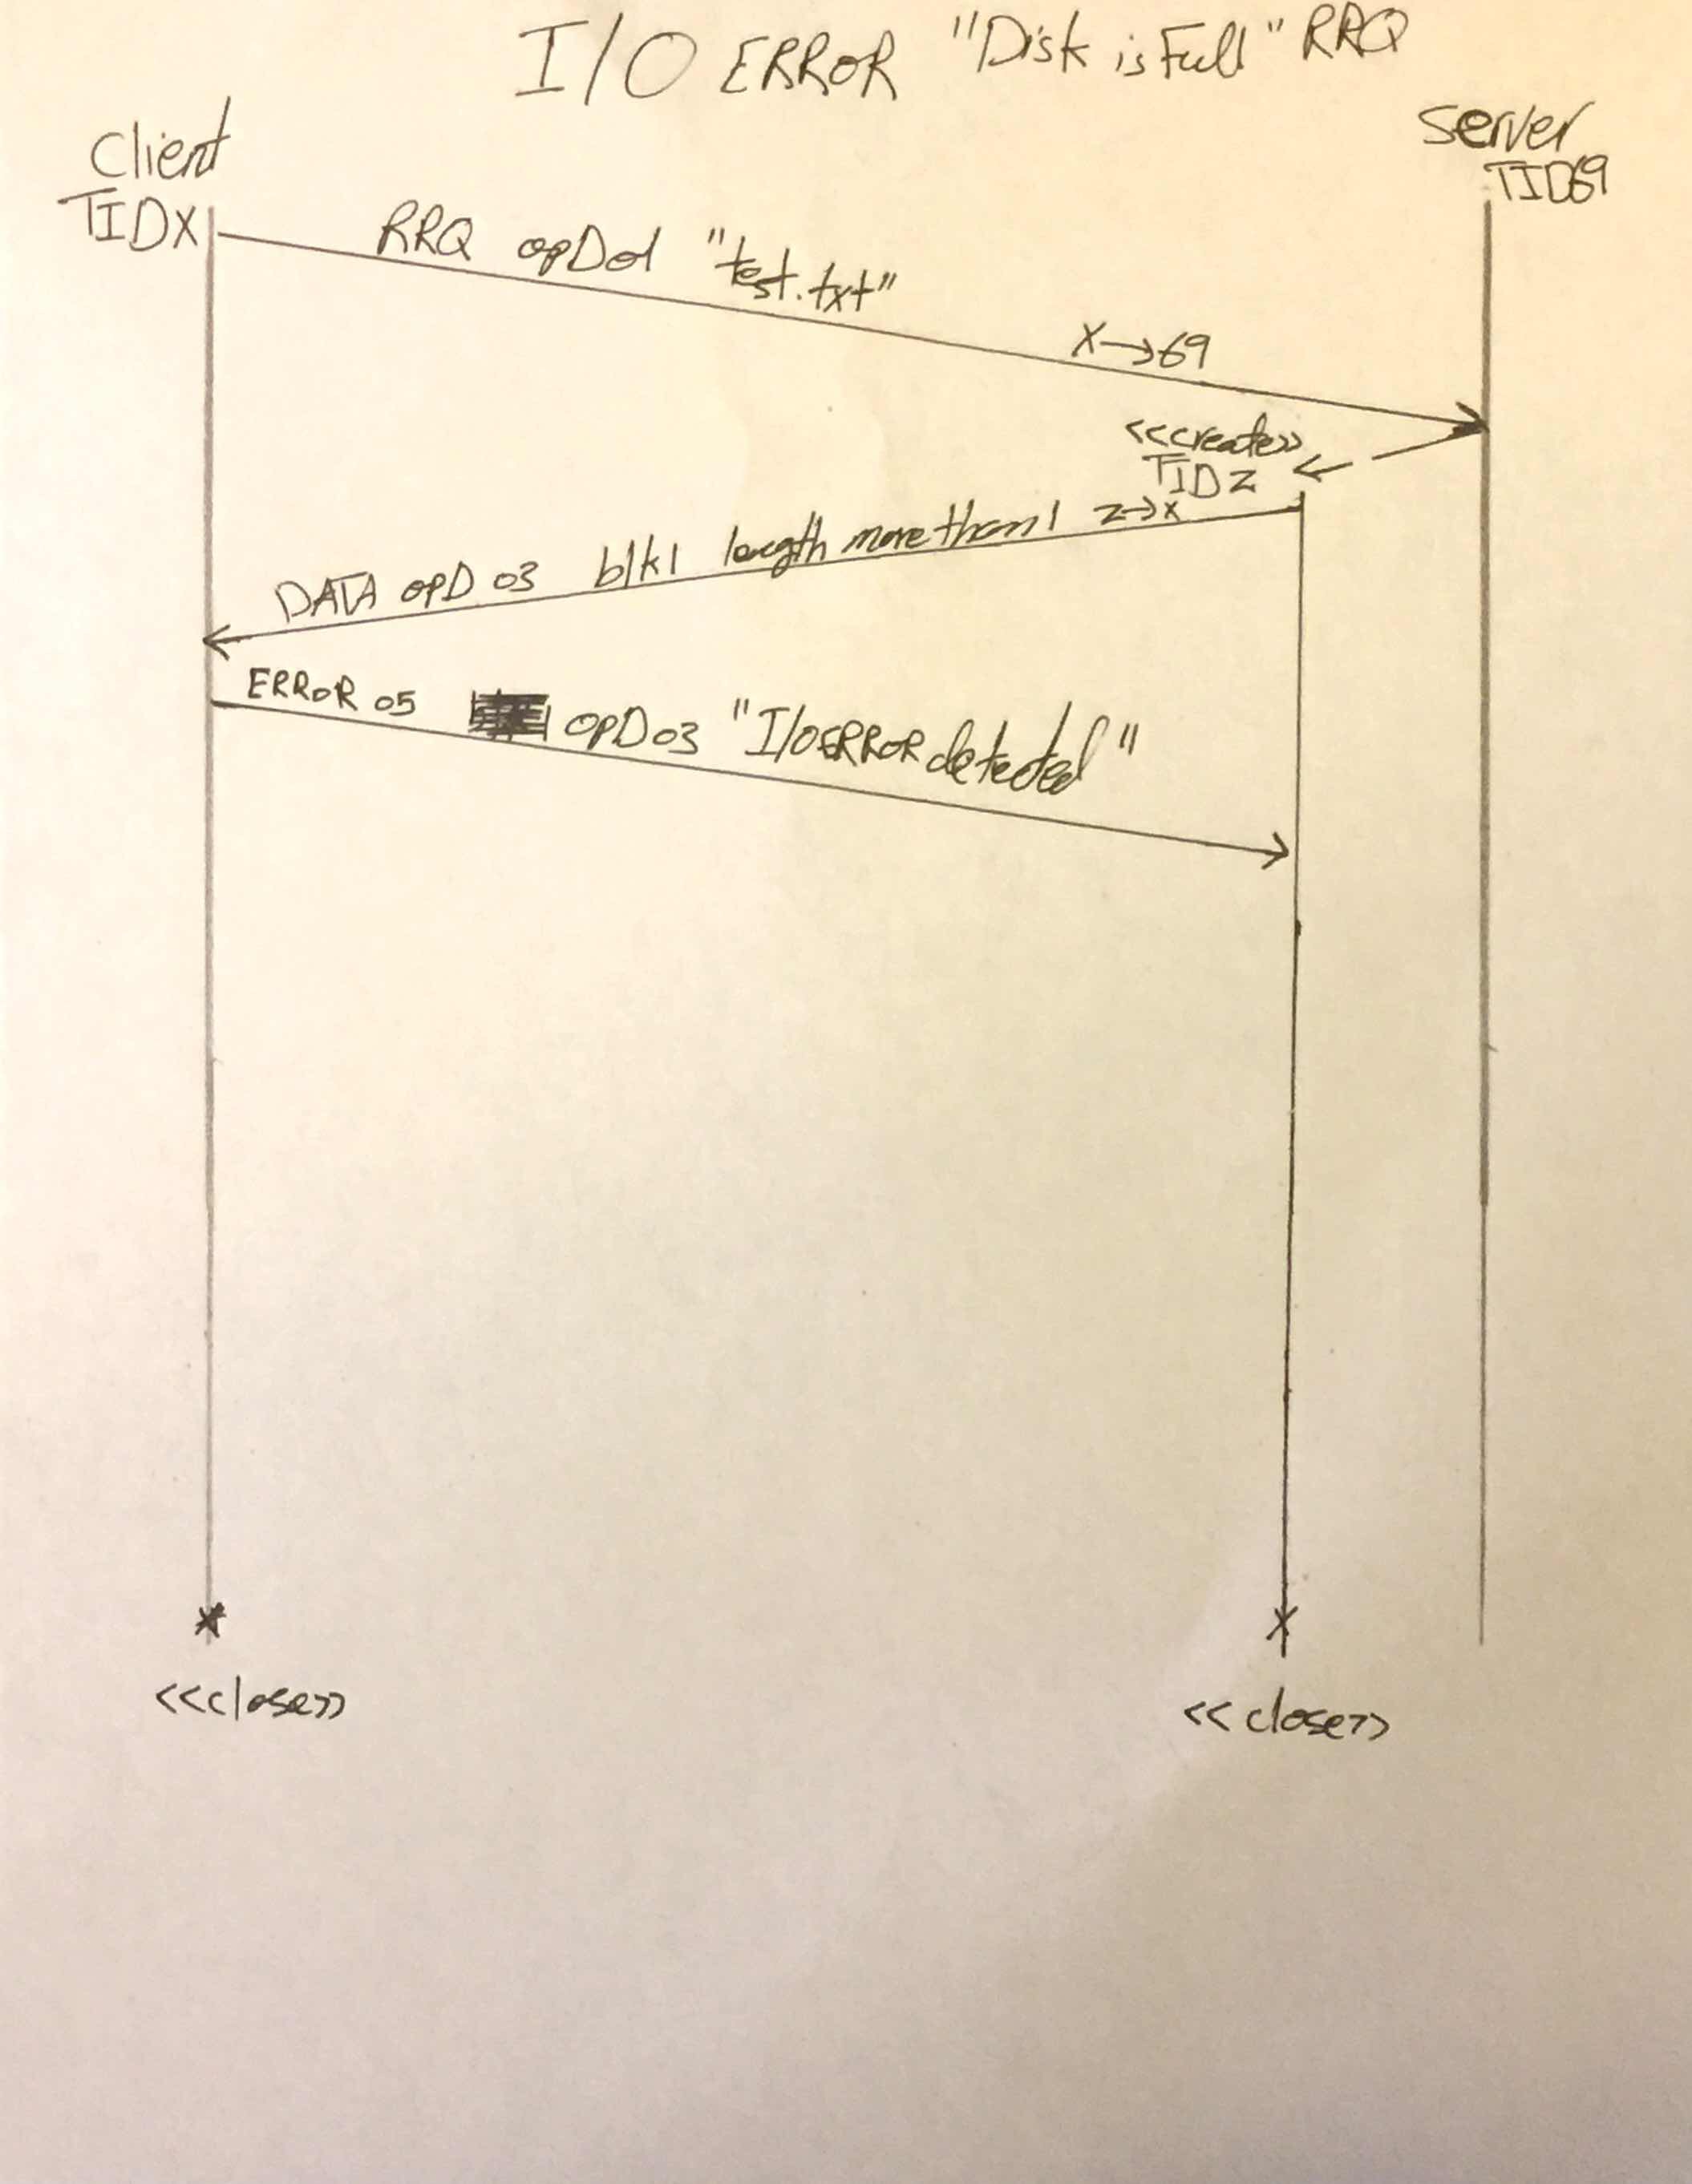 I/O ERROR "Disk is Full" RRQ
Client
TIDX
Server
TID69
RRQ opD01 "test.txt"
X→69
<<create>>
TID Z
DATA opD 03 blk1 length more than 1 z→x
ERROR 05 opD 03 "I/O ERROR detected"
<<close>>
<<close>>